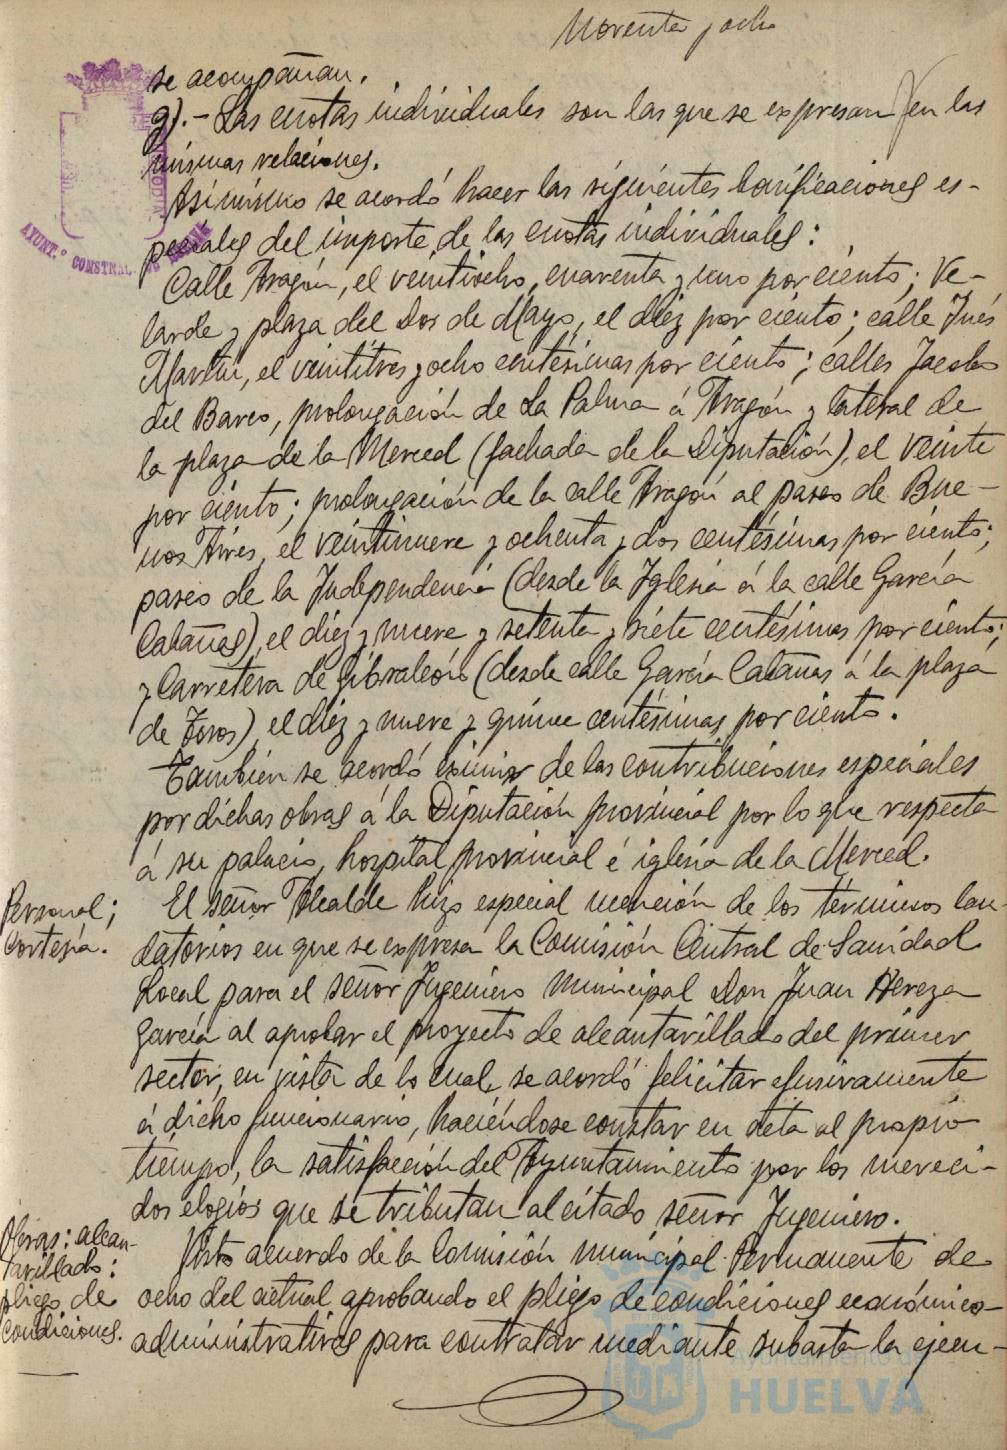 Noventa y ocho
se acompañan.
g).- Las cuotas individuales son las que se expresan en las
mismas relaciones.
Asimismo se acordó hacer las siguientes bonificaciones es-
peciales del importe de las cuotas individuales:
Calle Aragón, el veintiocho, cuarenta y uno por ciento; Ve-
larde y plaza del Dos de Mayo, el diez por ciento; calle Inés
Martín, el veintitres y ocho centésimas por ciento; calles Jacobo
del Barco, prolongación de La Palma á Aragón y lateral de
la plaza de la Merced (fachada de la Diputación), el veinte
por ciento; prolongación de la calle Aragón al paseo de Bue-
nos Aires, el veintinueve y ochenta y dos centésimas por ciento;
paseo de la Independencia (desde la Iglesia á la calle García
Cabañas), el diez y nueve y setenta y siete centésimas por ciento;
y Carretera de Gibraleón (desde calle García Cabañas á la plaza
de Toros), el diez y nueve y quince centésimas por ciento.
También se acordó eximir de las contribuciones especiales
por dichas obras á la Diputación provincial por lo que respecta
á su palacio, hospital provincial é iglesia de la Merced.
Personal;
cortesía.
El señor Alcalde hizo especial mención de los términos lau-
datorios en que se expresa la Comisión Central de Sanidad
Local para el señor Ingeniero municipal Don Juan Hereza
García al aprobar el proyecto de alcantarillado del primer
sector, en vista de lo cual, se acordó felicitar efusivamente
á dicho funcionario, haciéndose constar en acta al propio
tiempo, la satisfacción del Ayuntamiento por los mereci-
dos elogios que se tributan al citado señor Ingeniero.
Obras: alcan-
tarillado:
pliego de
condiciones.
Visto acuerdo de la Comisión municipal Permanente de
ocho del actual aprobando el pliego de condiciones económico-
administrativas para contratar mediante subasta la ejecu-
AYUNT.º CONSTNAL. DE HUELVA
Ayuntamiento de
HUELVA